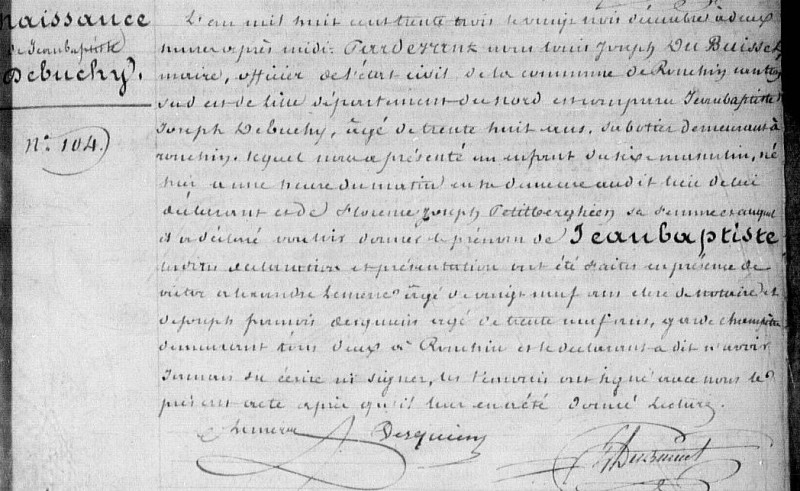 naissance
de Jeanbaptiste
Debuchy.
N.º 104.
L'an mil huit cent trente trois le vingt trois décembre à deux
heures après midi. Pardevant nous Louis Joseph Du Buisset
maire, officier de l'état civil de la commune de Ronchin canton
sud est de lille département du nord est comparu Jeanbaptiste
Joseph Debuchy, âgé de trente huit ans, sabotier demeurant à
ronchin. lequel nous a présenté un enfant du sexe masculin, né
hier a une heure du matin en sa demeure audit lieu de lui
déclarant et de Florence Joseph Petitberghien sa femme et auquel
il a déclaré vouloir donner le prénom de Jeanbaptiste
déclaration et présentation ont été faites en présence de
victor alexandre Lemerre âgé de vingt neuf ans clerc de notaire et
de Joseph françois desquiens agé de trente neuf ans, garde champêtre
demeurant tous deux à Ronchin et le déclarant a dit n'avoir
Jamais su écrire ni signer, les témoins ont signé avec nous le
présent acte après qu'il leur en a été donné Lecture.
Lemerre Desquiens Dubuisset